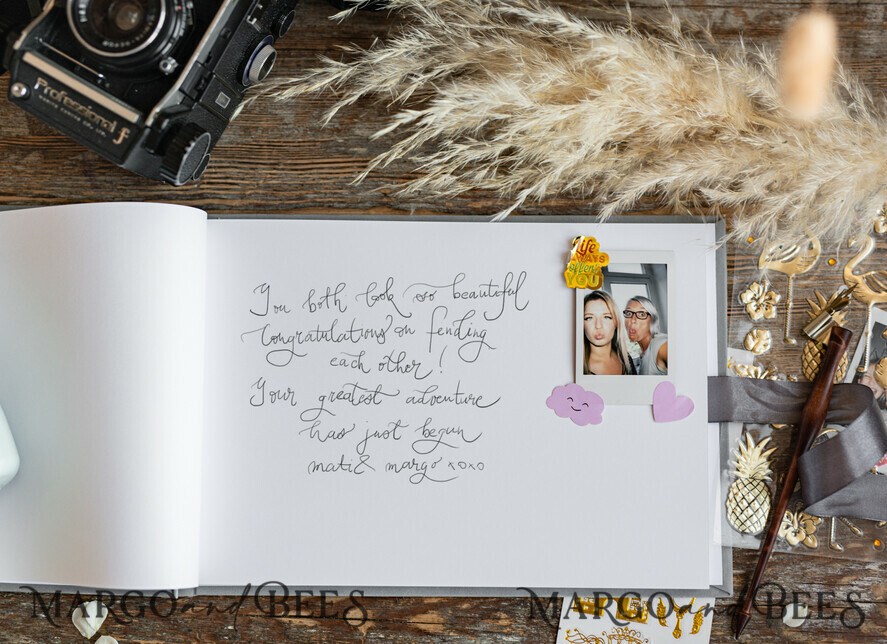 Professional f
You both look so beautiful
Congratulations on fending
each other!
Your greatest adventure
has just begun
mati & margo xoxo
Life
ALWAYS
offers
YOU
MARGO and BEES
MARGO and BEES